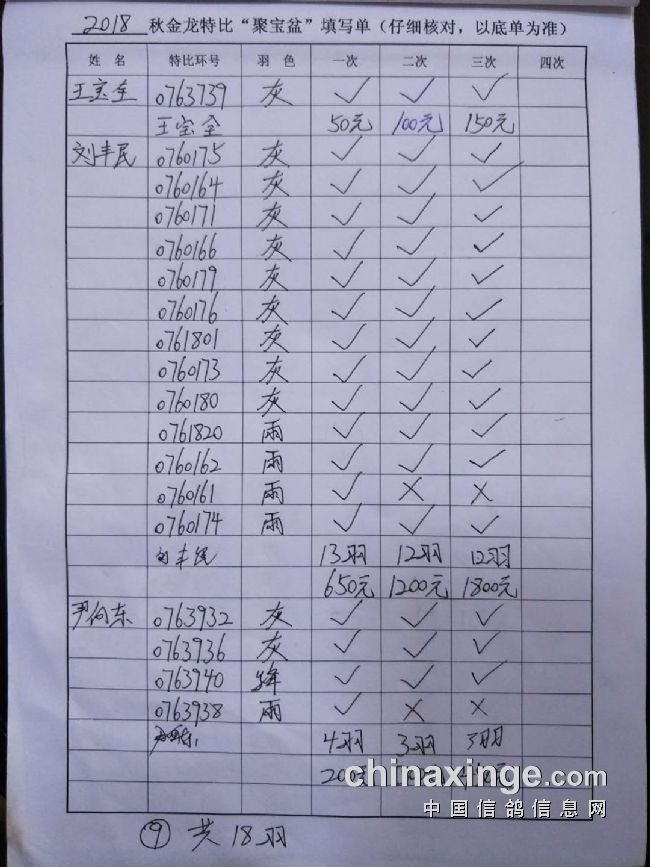 2018 秋金龙特比“聚宝盆”填写单（仔细核对，以底单为准）
姓 名 特比环号 羽 色 一次 二次 三次 四次
王宝全 0763739 灰 ✓ ✓ ✓
王宝全 50元 100元 150元
刘丰民 0760175 灰 ✓ ✓ ✓
0760164 灰 ✓ ✓ ✓
0760171 灰 ✓ ✓ ✓
0760166 灰 ✓ ✓ ✓
0760179 灰 ✓ ✓ ✓
0760176 灰 ✓ ✓ ✓
0761801 灰 ✓ ✓ ✓
0760173 灰 ✓ ✓ ✓
0760180 灰 ✓ ✓ ✓
0761820 雨 ✓ ✓ ✓
0760162 雨 ✓ ✓ ✓
0760161 雨 ✓ × ×
0760174 雨 ✓ ✓ ✓
刘丰民 13羽 12羽 12羽
650元 1200元 1800元
尹向东 0763932 灰 ✓ ✓ ✓
0763936 灰 ✓ ✓ ✓
0763940 绛 ✓ ✓ ✓
0763938 雨 ✓ × ×
4羽 3羽 3羽
200元
chinaxinge.com
中国信鸽信息网
⑨ 共18羽